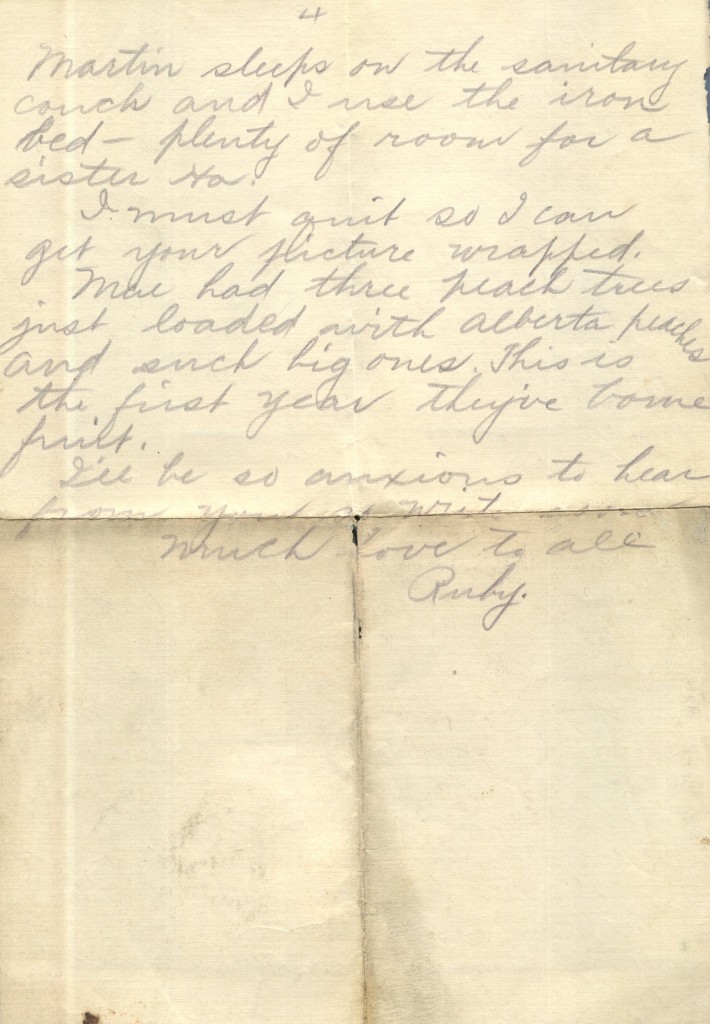 4
Martin sleeps on the sanitary
couch and I use the iron
bed - plenty of room for a
sister Ha.
I must quit so I can
get your picture wrapped.
Mae had three peach trees
just loaded with alberta peaches
and such big ones. This is
the first year they've borne
fruit.
I'll be so anxious to hear
from you
Much love to all
Ruby.